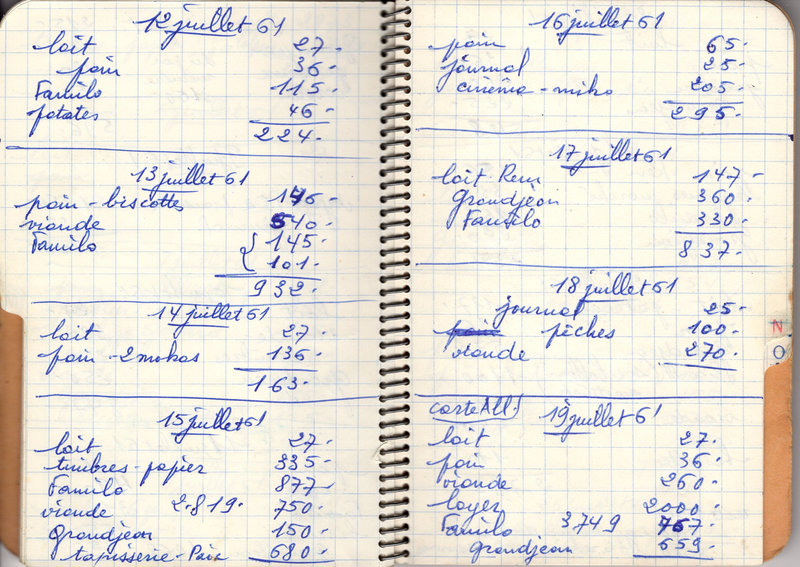 12 juillet 61
lait 27.
pain 36.
Familo 115.
patates 46.
224.
13 juillet 61
pain - biscottes 146.
viande 540.
Familo { 145.
101.
932.
14 juillet 61
lait 27.
pain - 2 mokas 136.
163.
15 juillet 61
lait 27.
timbres - papier 335.
Familo 877.
viande 2.819. 750.
grandjean 150.
tapisserie - Pain 680.
16 juillet 61
pain 65.
journal 25.
cinéma - miko 205.
295.
17 juillet 61
lait 147.
Grandjean 360.
Familo 330.
837.
18 juillet 61
journal 25.
pain pêches 100.
viande 270.
N
O
carte All. 19 juillet 61
lait 27.
pain 36.
viande 260.
loyer 2000.
Familo 3749 767.
grandjean 659.